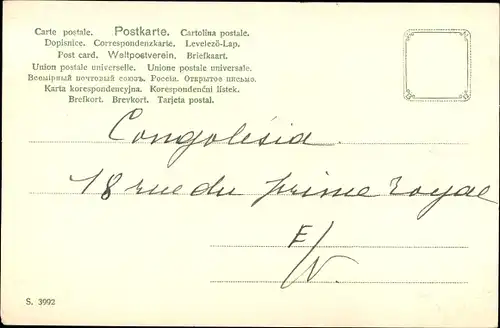 Carte postale. Postkarte. Cartolina postale.
Dopisnice. Correspondenzkarte. Levelező-Lap.
Post card. Weltpostverein. Briefkaart.
Union postale universelle. Unione postale universale.
Всемірный почтовый союзъ. Россіа. Открытое письмо.
Karta korespondencyjna. Korespondenční lístek.
Brefkort. Brevkort. Tarjeta postal.
Congolésia.
18 rue du prime Royal
E/V.
S. 3992